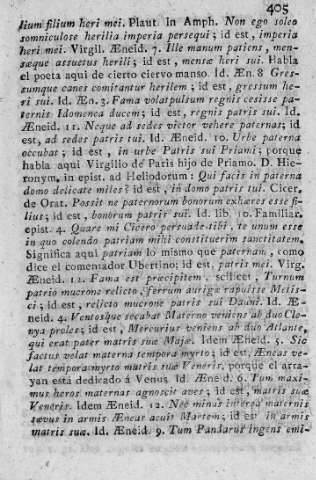 405
lium filium heri mei. Plaut. In Amph. Non ego soleo
somniculose herilia imperia persequi; id est, imperia
heri mei. Virgil. Æneid. 7. Ille manum patiens, men-
sæque assuetus herili; id est, mensæ heri sui. Habla
el poeta aqui de cierto ciervo manso. Id. Æn. 8 Gres-
sumque canes comitantur herilem; id est, gressum he-
ri sui. Id. Æn. 3. Fama volat pulsum regnis cesisse pa-
ternis Idomenea ducem; id est, regnis patris sui. Id.
Æneid. 11. Neque ad sedes victor vehere paternas; id
est, ad sedes patris tui. Id. Æneid. 10. Urbe paterna
occubat; id est, in urbe Patris sui Priami; porque
habla aqui Virgilio de Paris hijo de Priamo. D. Hie-
ronym, in epist. ad Heliodorum: Qui facis in paterna
domo delicate miles? id est, in domo patris tui. Cicer.
de Orat. Possit ne paternorum bonorum exhæres esse fi-
lius; id est, bonorum patris sui. Id. lib. 10. Familiar.
epist. 4. Quare mi Cicero persuade tibi, te unum esse
in quo colendo patriam mihi constituerim sanctitatem.
Significa aqui patriam lo mismo que paternam, como
dice el comentador Ubertino; id est, patris mei. Virg.
Æneid. 12. Fama est præcipitem, scilicet, Turnum
patrio mucrone relicto, ferrum aurigæ rapuisse Metis-
ci; id est, relicto mucrone patris sui Dauni. Id. Æ-
neid. 4. Ventosque secabat Materno veniens ab avo Cylle-
nya proles; id est, Mercurius veniens ab avo Atlante,
qui erat pater matris suæ Majæ. Idem Æneid. 5. Sic
factus velat materna tempora myrto; id est, Æneas ve-
lat tempora myrto matris suæ Veneris, porque el arra-
yan está dedicado á Venus. Id. Æneid. 6. Tum maxi-
mus heros maternas agnoscit aves; id est, matris suæ
Veneris. Idem Æneid. 12. Nec minus interea maternis
sævus in armis Æneas acuit Martem; id est in armis
matris suæ. Id. Æneid. 9. Tum Pandarus ingens emi-